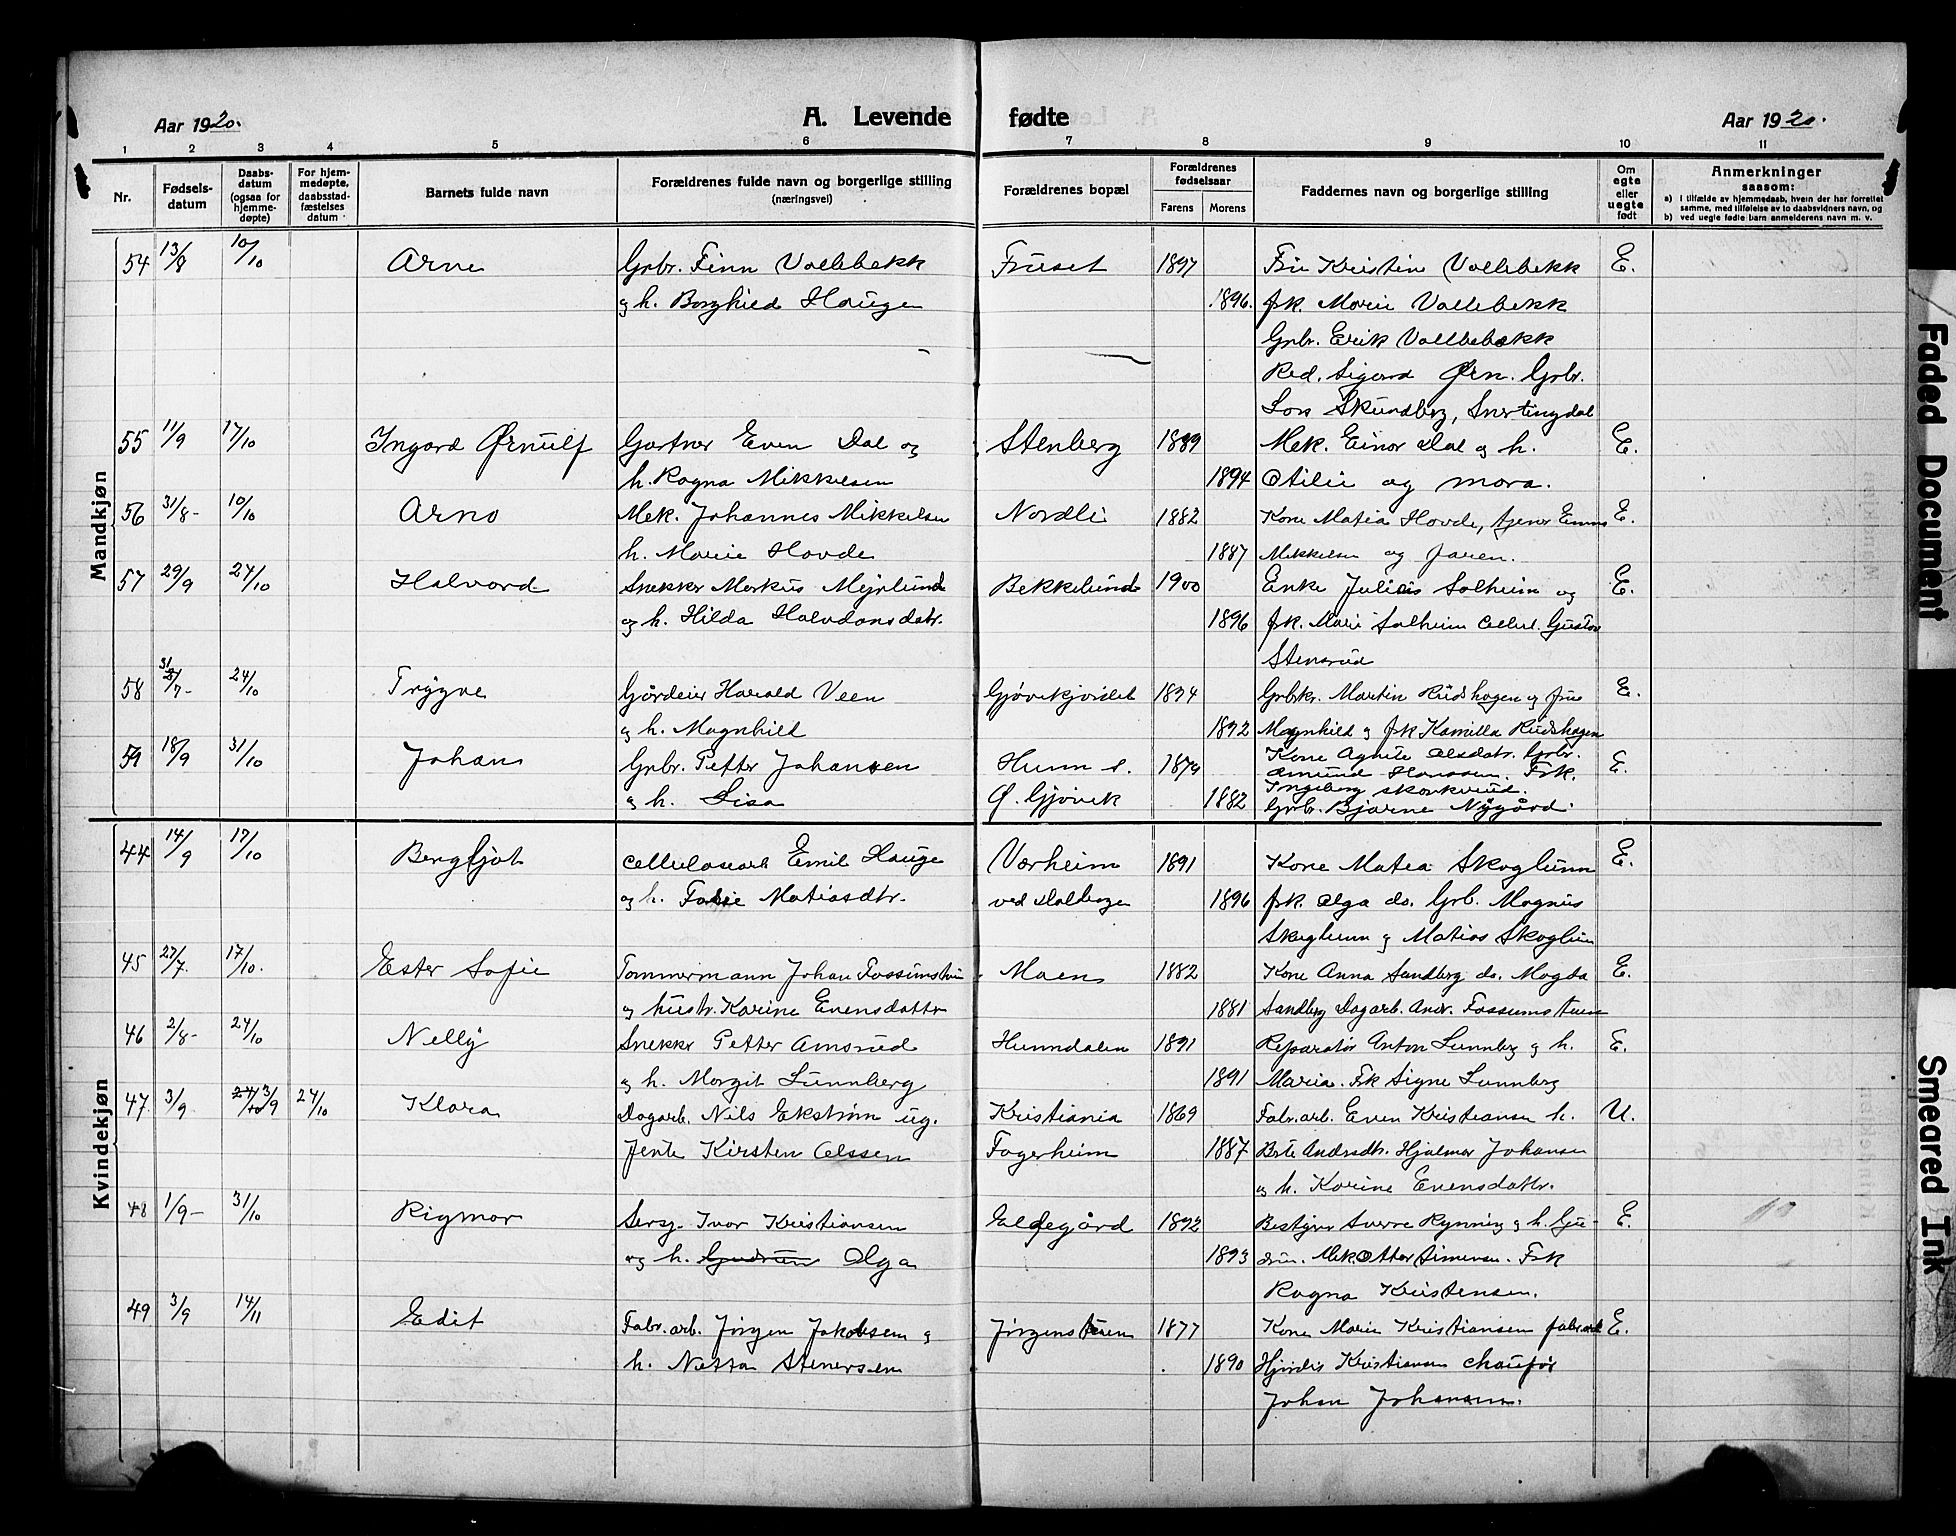 Aar 1920.
A. Levende fødte
Aar 1920.
1 2 3 4 5 6 7 8 9 10 11
Nr.
Fødsels-
datum
Daabs-
datum
(ogsaa for
hjemme-
døpte)
For hjem-
medøpte,
daabsstad-
fæstelses
datum
Barnets fulde navn
Forældrenes fulde navn og borgerlige stilling
(næringsvei)
Forældrenes bopæl
Forældrenes
fødselsaar
Farens Morens
Faddernes navn og borgerlige stilling
Om
egte
eller
uegte
født
Anmerkninger
saasom:
a) i tilfælde av hjemmedaab, hvem der har forrettet
samme, med tilføielse av to daabsvidners navn, og
b) ved uegte fødte barn anmelderens navn m. v.
Mandkjøn
54 13/8 10/10 Arne Grbr. Finn Vollebekk Fruset 1897 Fru Kristine Vollebekk E.
og h. Borghild Haugen 1896. frk. Marie Vollebekk
Grbr. Erik Vollebekk
Red. Sigurd Ørn. Grbr.
Lars Skundberg, Snertingdal
55 11/9 17/10 Ingard Ørnulf Gartner Even Dal og Stenberg 1889 Mek. Einar Dal og h. E.
h. Ragna Mikkelsen 1894 Otilie og mora.
56 31/8- 10/10 Arno Mek. Johannes Mikkelsen Nordli 1882 Kone Matea Hovde, tjener Emma E.
h. Marie Hovde 1887 Mikkelsen og faren.
57 29/9 24/10 Halvard Snekker Markus Mejnlund Bekkelund 1900 Enke Julie Solheim og E.
og h. Hilda Halvdansdatr. 1896 frk. Marie Solheim Cellul. Gustav
Stensrud
58 31/7- 24/10 Trygve Gårdeier Harald Veen Gjøvikjordet 1894 Grbkr. Martin Rudshagen og fru E.
og h. Magnhild 1892 Magnhild og frk Kamilla Rudshagen
59 18/9 31/10 Johan Grbr. Petter Johansen Hunn s. 1879 Kone Agnete Olsdatr. Grbr. E.
Amund Hanssen. Frk.
og h. Lisa Ø. Gjøvik 1882 Ingeborg Skonkrud.
Grb. Bjarne Nygård.
Kvindekjøn
44 14/9 17/10 Bergljot Cellulosearb Emil Hauge Varheim 1891 Kone Matea Skoglunn E.
og h. Matiasdtr. ved Dalborgen 1896 frk. Olga do. Grb. Magnus
Skoglunn og Matias Skoglun
45 27/7. 17/10. Ester Sofie Tømmermann Johan Fossumstuen Moen 1882 Kone Anna Sandberg do. Magda E.
og hustr. Karine Evensdattr 1881 Sandberg Dagarb. Andr. Fossumstuen
46 2/8- 24/10 Nelly Snekkr Petter Amsrud Hunndalen 1891 Reparatør Anton Lunnberg og h. E.
og h. Margit Lunnberg 1891 Maria. Frk Signe Lunnberg
47. 3/9 24/10 3/9 24/10 Klara Dagarb. Nils Ekstrøm ug. Kristiania 1869 Fabr.arb. Even Kristiansen h. U.
Jente Kirsten Olssen Fagerheim 1887 Berte Andrsdtr. Hjalmar Johansen
og h. Karine Evensdattr.
48 1/9- 31/10 Rigmor Sersj. Ivar Kristiansen Elvegård 1892 Bestyrer Sverre Rynning og h. Gu- E.
og h. Gudrun Olga 1893 drun. Mek. Otter Simensen. Frk
Ragna Kristensen.
49 3/9 14/11 Edit Fabr.arb. Jørgen Jakobsen og Jørgenstuen 1877 Kone Marie Kristiansen fabrarb E.
h. Netta Stenersen 1890 Hjørdis Kristiansen chaufør
Johan Johansen.
Faded Document
Smeared Ink